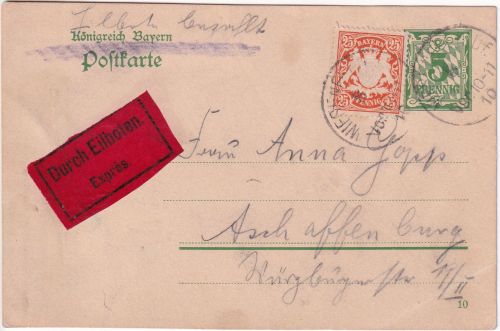 Eilbote bezahlt
Königreich Bayern
Postkarte
25 BAYERN 25
25 PFENNIG 25
5
PFENNIG
Durch Eilboten.
Exprès.
Frau Anna Popp
Aschaffenburg
Würzburgerstr 11/II
10